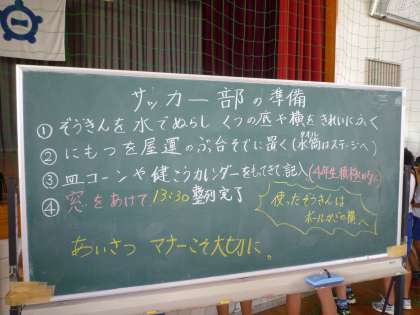 サッカー部の準備
① ぞうきんを水でぬらし くつの底や横をきれいにふく
② にもつを屋運のぶ台そでに置く(水筒はステージへ)
タオル
③ 皿コーンや健こうカレンダーをもってきて記入(4年生
④ 窓をあけて 13:30 整列完了
使ったぞうきんは
ボールかごの横へ
あいさつ マナーこそ大切に。